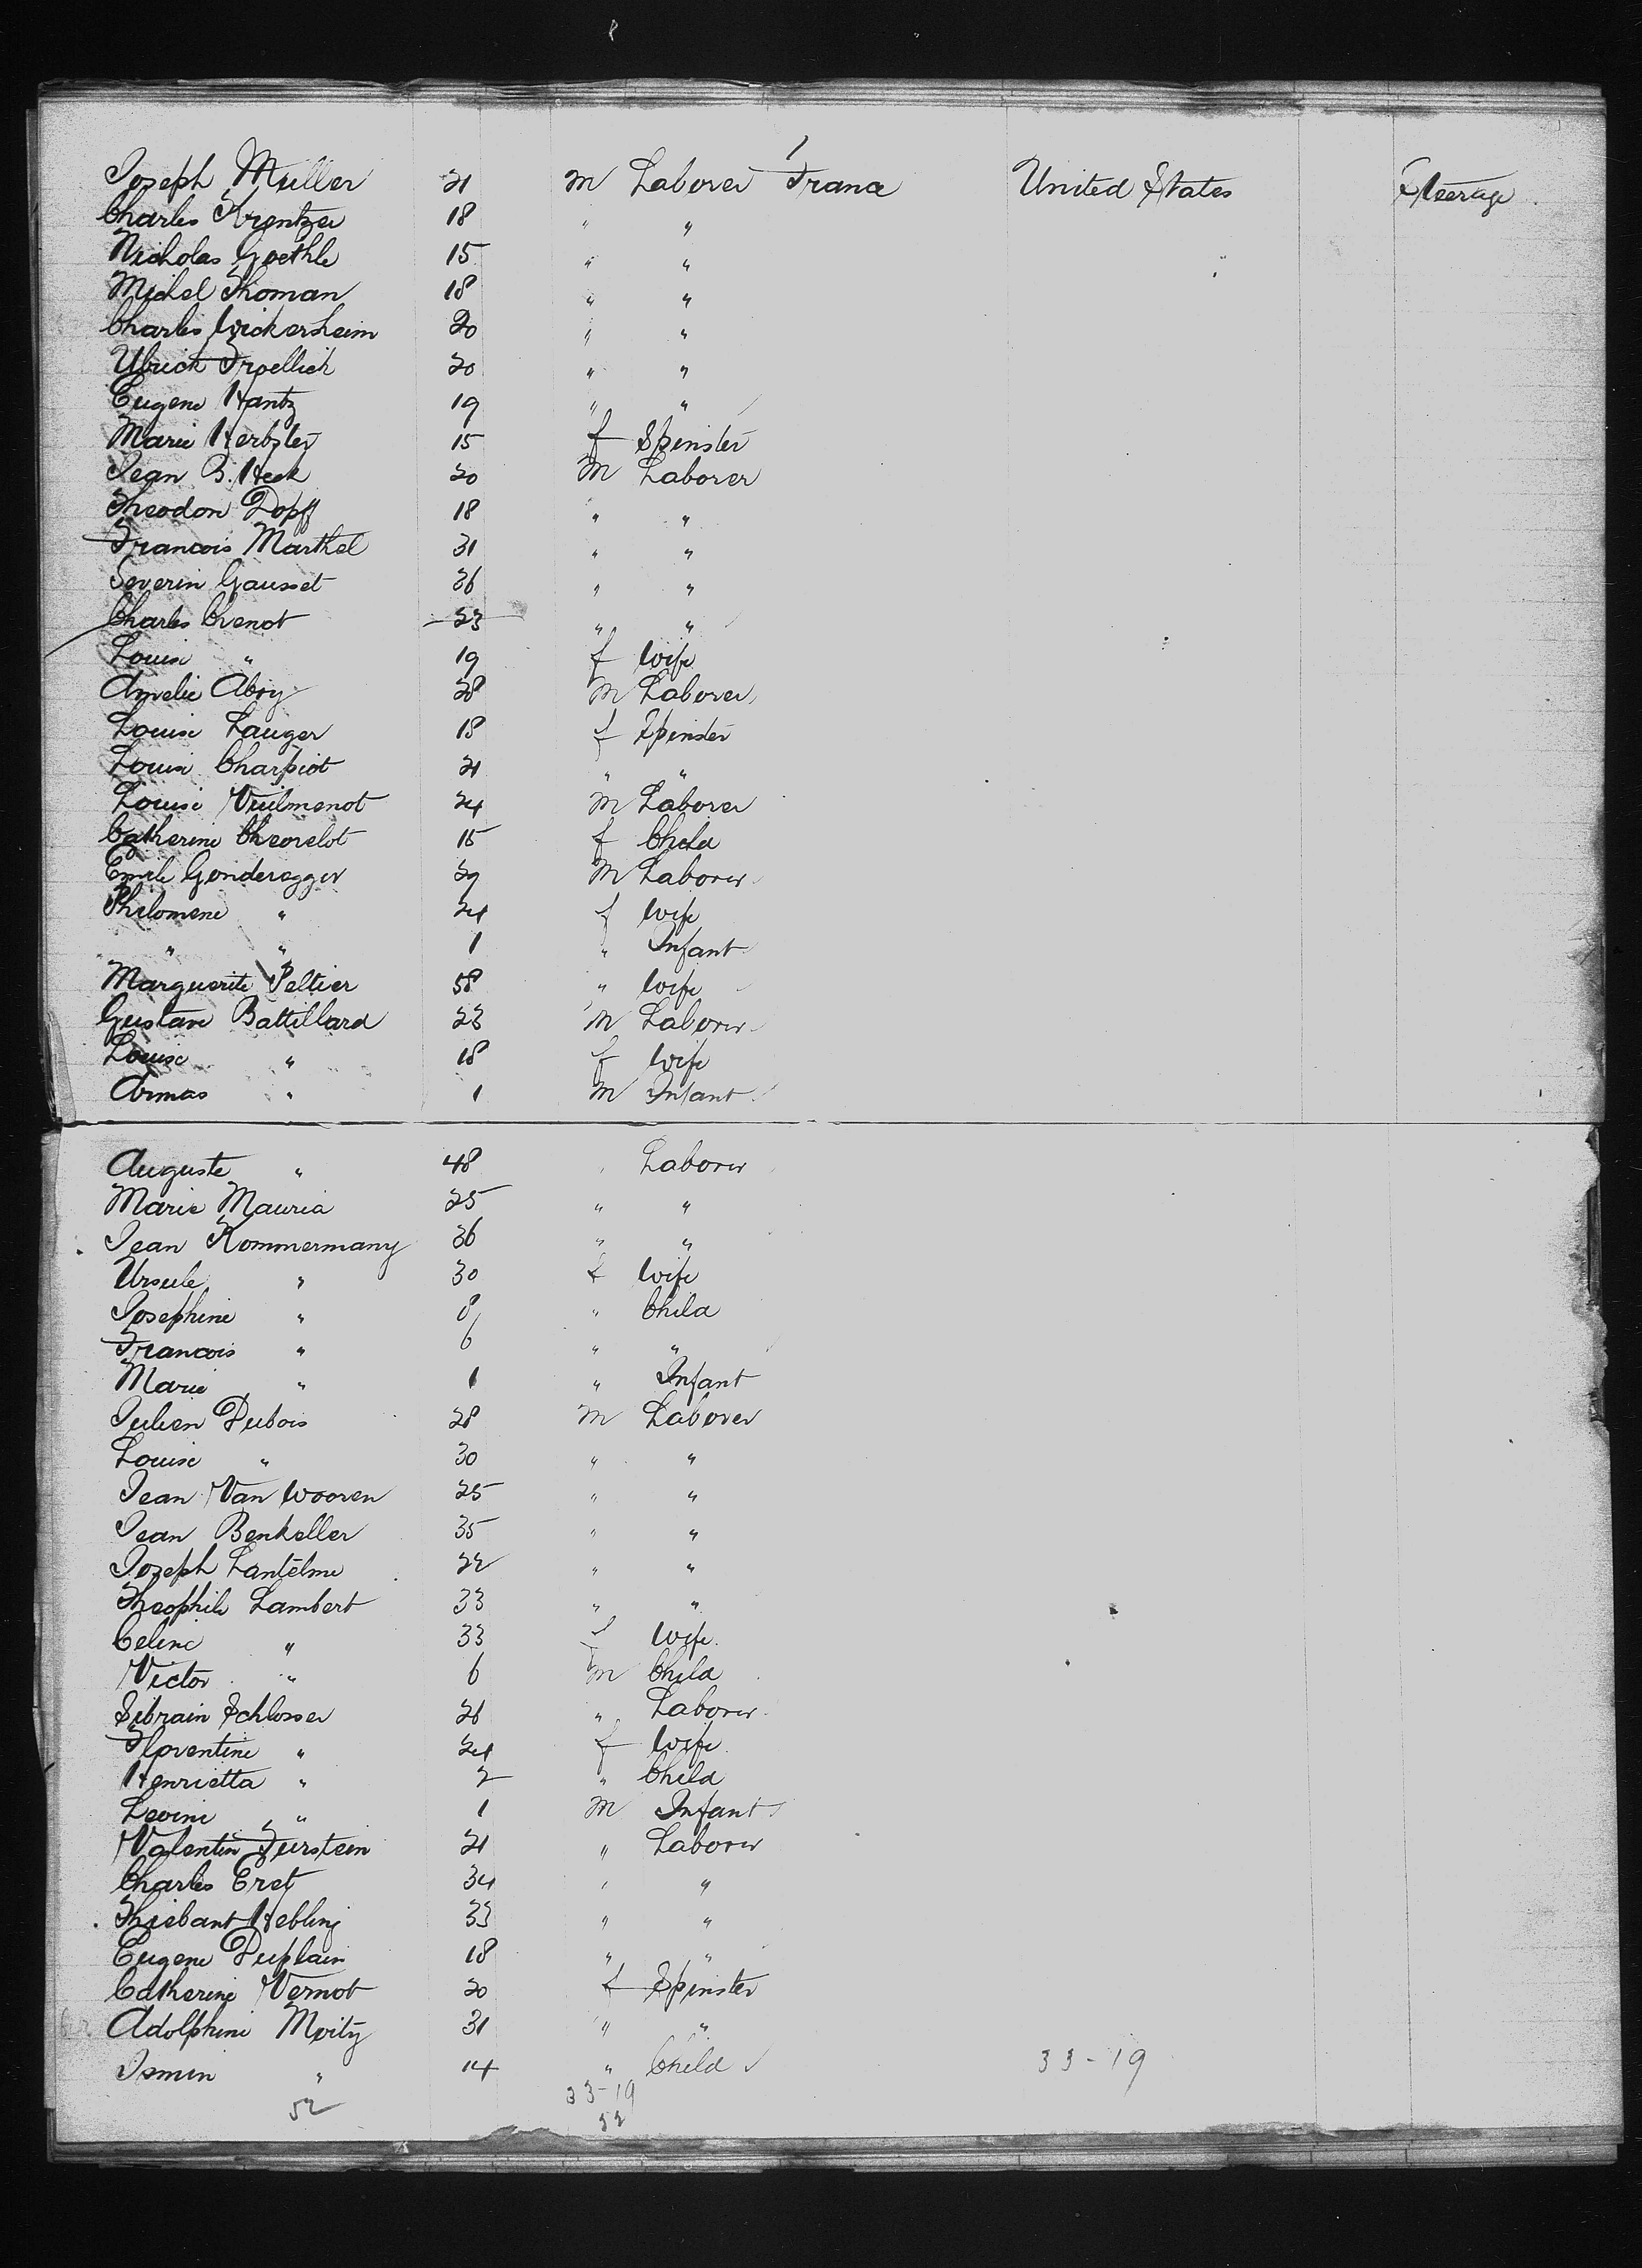 Joseph Muller 21 m Laborer France United States Steerage
Charles Krentzer 18 " "
Nicholas Goethle 15 " "
Michel Thoman 18 " "
Charles Wickersheim 20 " "
Ulrich Froellich 20 " "
Eugene Hantz 19 " "
Marie Herbster 15 f Spinster
Jean B. Heck 20 m Laborer
Theodon Dopff 18 " "
Francois Marthel 31 " "
Severin Gausset 36 " "
Charles Chenot 23 " "
Louise " 19 f wife
Amelie Abry 28 m Laborer
Louise Lauger 18 f Spinster
Louise Charpiot 21 " "
Louise Vuilmenot 24 m Laborer
Catherine Cheorelot 15 f Child
Emile Gonderegger 29 m Laborer
Philomene " 24 f wife
" " 1 " Infant
Marguerite Peltier 58 " wife
Gustave Battillard 23 m Laborer
Louise " 18 f wife
Armas " 1 m Infant
Auguste " 48 " Laborer
Marie Mauria 25 " "
Jean Kommermany 36 " "
Ursule " 30 f wife
Josephine " 8 " Child
Francois " 6 " "
Marie " 1 " Infant
Julien Dubois 28 m Laborer
Louise " 30 " "
Jean Van Wooren 25 " "
Jean Benkeller 35 " "
Joseph Lantelme 22 " "
Theophile Lambert 33 " "
Celine " 33 f wife
Victor " 6 m Child
Sibrain Schlosser 26 " Laborer
Florentine " 24 f wife
Henrietta " 2 " Child
Leonie " 1 m Infant
Valentin Furstein 21 " Laborer
Charles Erety 34 " "
Thiebant Hebling 33 " "
Eugene Duplain 18 " "
Catherine Vernot 20 f Spinster
Adolphine Moity 31 " "
Ismin " 14 " Child 33-19
52 33-19
52